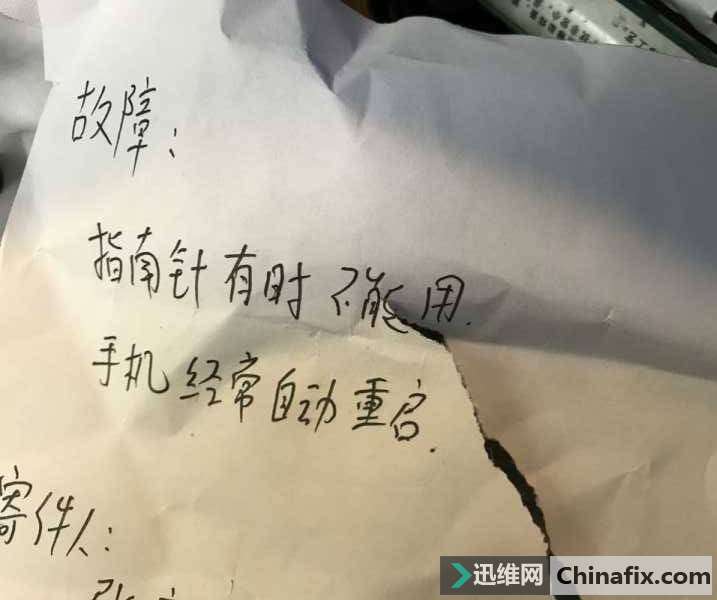 故障:
指南针有时不能用.
手机经常自动重启.
寄件人:
迅维网 Chinafix.com